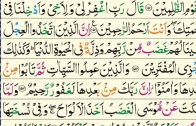 قَوْمِ الظّٰلِمِيْنَ ۝ قَالَ رَبِّ اغْفِرْ لِيْ وَلِاَخِيْ وَاَدْخِلْنَا فِيْ
وَاَنْتَ اَرْحَمُ الرّٰحِمِيْنَ ۝ اِنَّ الَّذِيْنَ اتَّخَذُوا الْعِجْلَ
غَضَبٌ مِّنْ رَّبِّهِمْ وَذِلَّةٌ فِي الْحَيٰوةِ الدُّنْيَا وَكَذٰلِكَ
الْمُفْتَرِيْنَ ۝ وَالَّذِيْنَ عَمِلُوا السَّيِّاٰتِ ثُمَّ تَابُوْا مِنْۢ
وَاٰمَنُوْا اِنَّ رَبَّكَ مِنْۢ بَعْدِهَا لَغَفُوْرٌ رَّحِيْمٌ ۝
عَنْ مُّوْسَى الْغَضَبُ اَخَذَ الْاَلْوَاحَ وَفِيْ